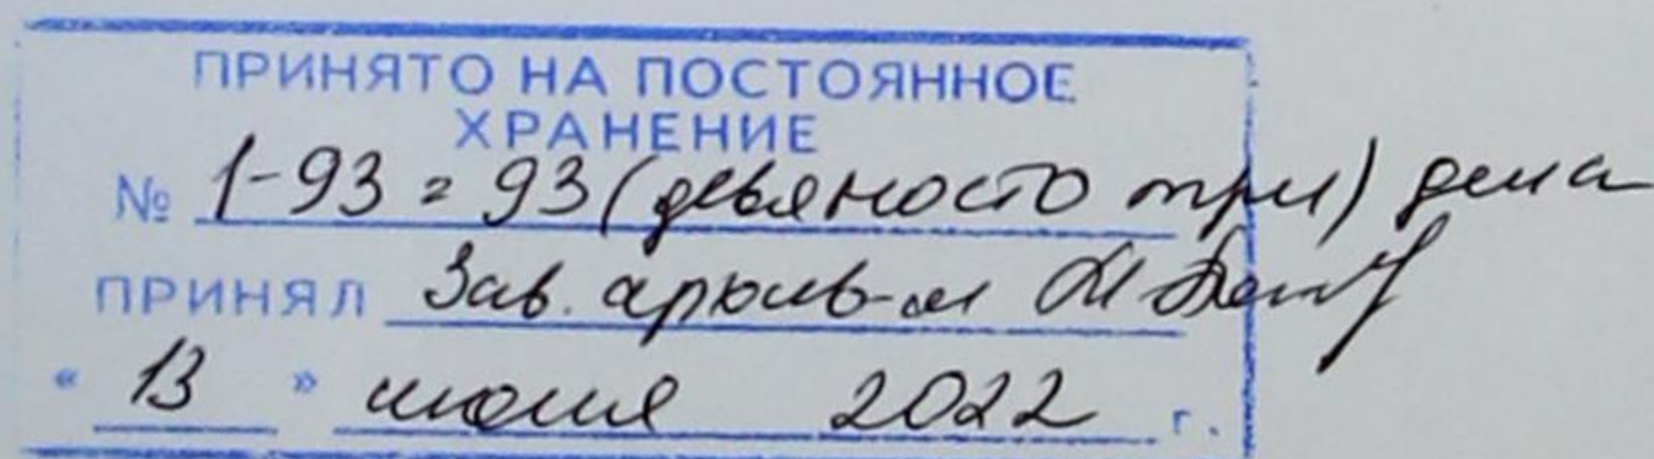 ПРИНЯТО НА ПОСТОЯННОЕ
ХРАНЕНИЕ
№ 1-93 = 93 (девяносто три) дела
ПРИНЯЛ Зав. архив-м
" 13 " 2022 г.